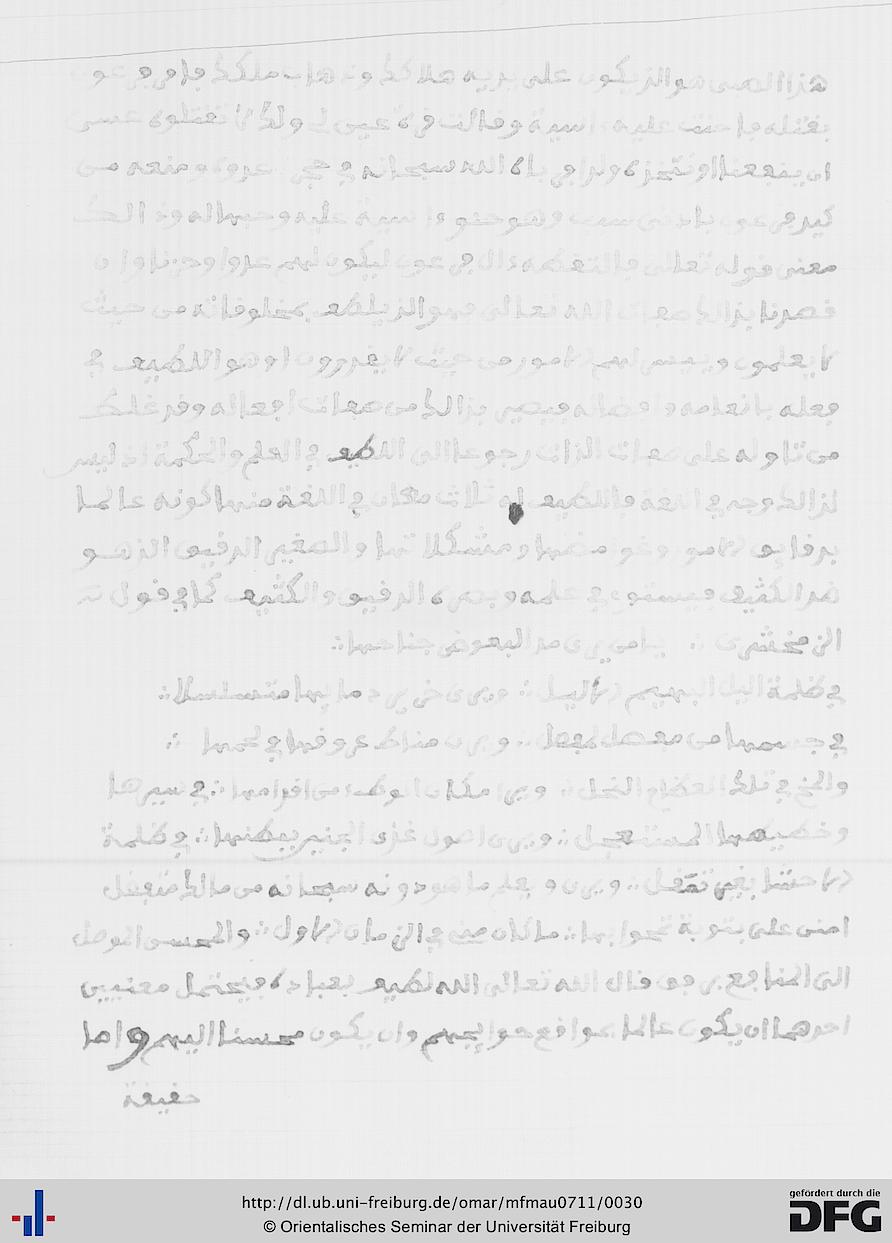 هذا الصبي هو الذي يكون على يديه هلاكك وذهاب ملكك فامر فرعون
بقتله فاحنت عليه اسية وقالت قرة عين لي ولك لا تقتلوه عسى
ان ينفعنا او نتخذه ولدا فرباه الله سبحانه في حجر عدوه ومنعه من
كيد فرعون وهو حنو اسية عليه وحبها له وذالك
معنى قوله تعالى فالتقطه ءال فرعون ليكون لهم عدوا وحزنا وان
قصدنا بذالك صفات الله تعالى فهو الذي يلطف بمخلوقاته من حيث
لا يعلمون وييسر لهم الامور من حيث لا يقدرون او هو اللطيف في
فعله بانعامه وافضاله فيصير بذالك من صفات افعاله وقد غلط
من تاوله على صفات الذات رجوعا الى اللطيف في العلم والحكمة اذ ليس
لذالك وجه في اللغة فاللطيف له ثلاث معان في اللغة منها كونه عالما
بدقايق الامور وغوامضها ومشكلاتها والصغير الدقيق الذي هو
ضد الكثيف فيستوي في علمه وبصره الدقيق والكثيف كما في قول
الزمخشري ∴ يا من يرى مد البعوض جناحها ∴
في ظلمة اليل البهيم الاليل ∴ ويرى خرير دمايها متسلسلا ∴
في جسمها من مفصل لمفصل ∴ ويرى مناط عروقها في لحمها ∴
والمخ في تلك العظام النحل ∴ ويرى مكان الوطء من اقدامها ∴ في سيرها
وخطيطها المستعجل ∴ ويرى اصول غذى الجنين ببطنها ∴ في ظلمة
الاحشا بغير تمقل ∴ ويرى ويعلم ما هو دونه سبحانه من مالك متفضل
امنن علي بتوبة تمحوا بها ∴ ما كان مني في الزمان الاول ∴ والمحسن الموصل
الى المنافع برفق قال الله تعالى الله لطيف بعباده فيحتمل معنيين
احدهما ان يكون عالما بمواقع حوايجهم وان يكون محسنا اليهم واما
حقيقة
http://dl.ub.uni-freiburg.de/omar/mfmau0711/0030
© Orientalisches Seminar der Universität Freiburg
gefördert durch die
DFG